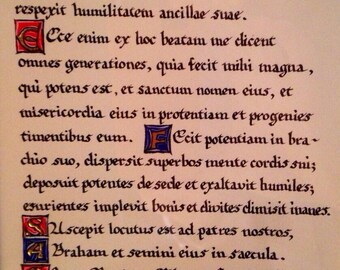 respexit humilitatem ancillae suae.
Ecce enim ex hoc beatam me dicent
omnes generationes, quia fecit mihi magna,
qui potens est, et sanctum nomen eius, et
misericordia eius in protentiam et progenies
timentibus eum. Fecit potentiam in bra-
chio suo, dispersit superbos mente cordis sui;
deposuit potentes de sede et exaltavit humiles;
esurientes implevit bonis et divites dimisit inanes.
Suscepit locutus est ad patres nostros,
Abraham et semini eius in saecula.